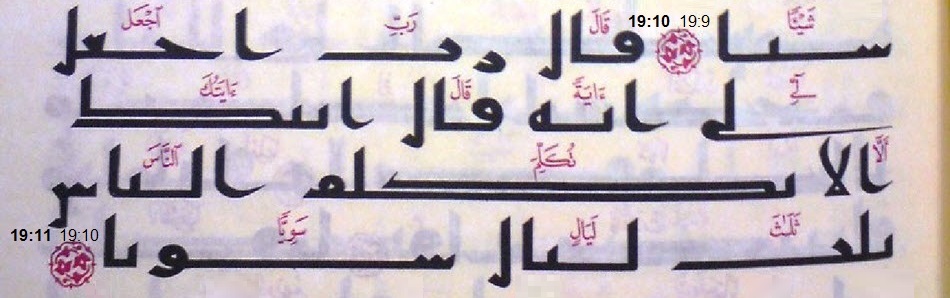 شَيْـًٔا 19:9 19:10 قَالَ رَبِّ ٱجْعَل
شيا قال رب اجعل
لِّىٓ ءَايَةً قَالَ ءَايَتُكَ
لى ايه قال ايتك
أَلَّا تُكَلِّمَ ٱلنَّاسَ
الا تكلم الناس
ثَلَـٰثَ لَيَالٍ سَوِيًّا 19:10 19:11
ثلث ليال سويا